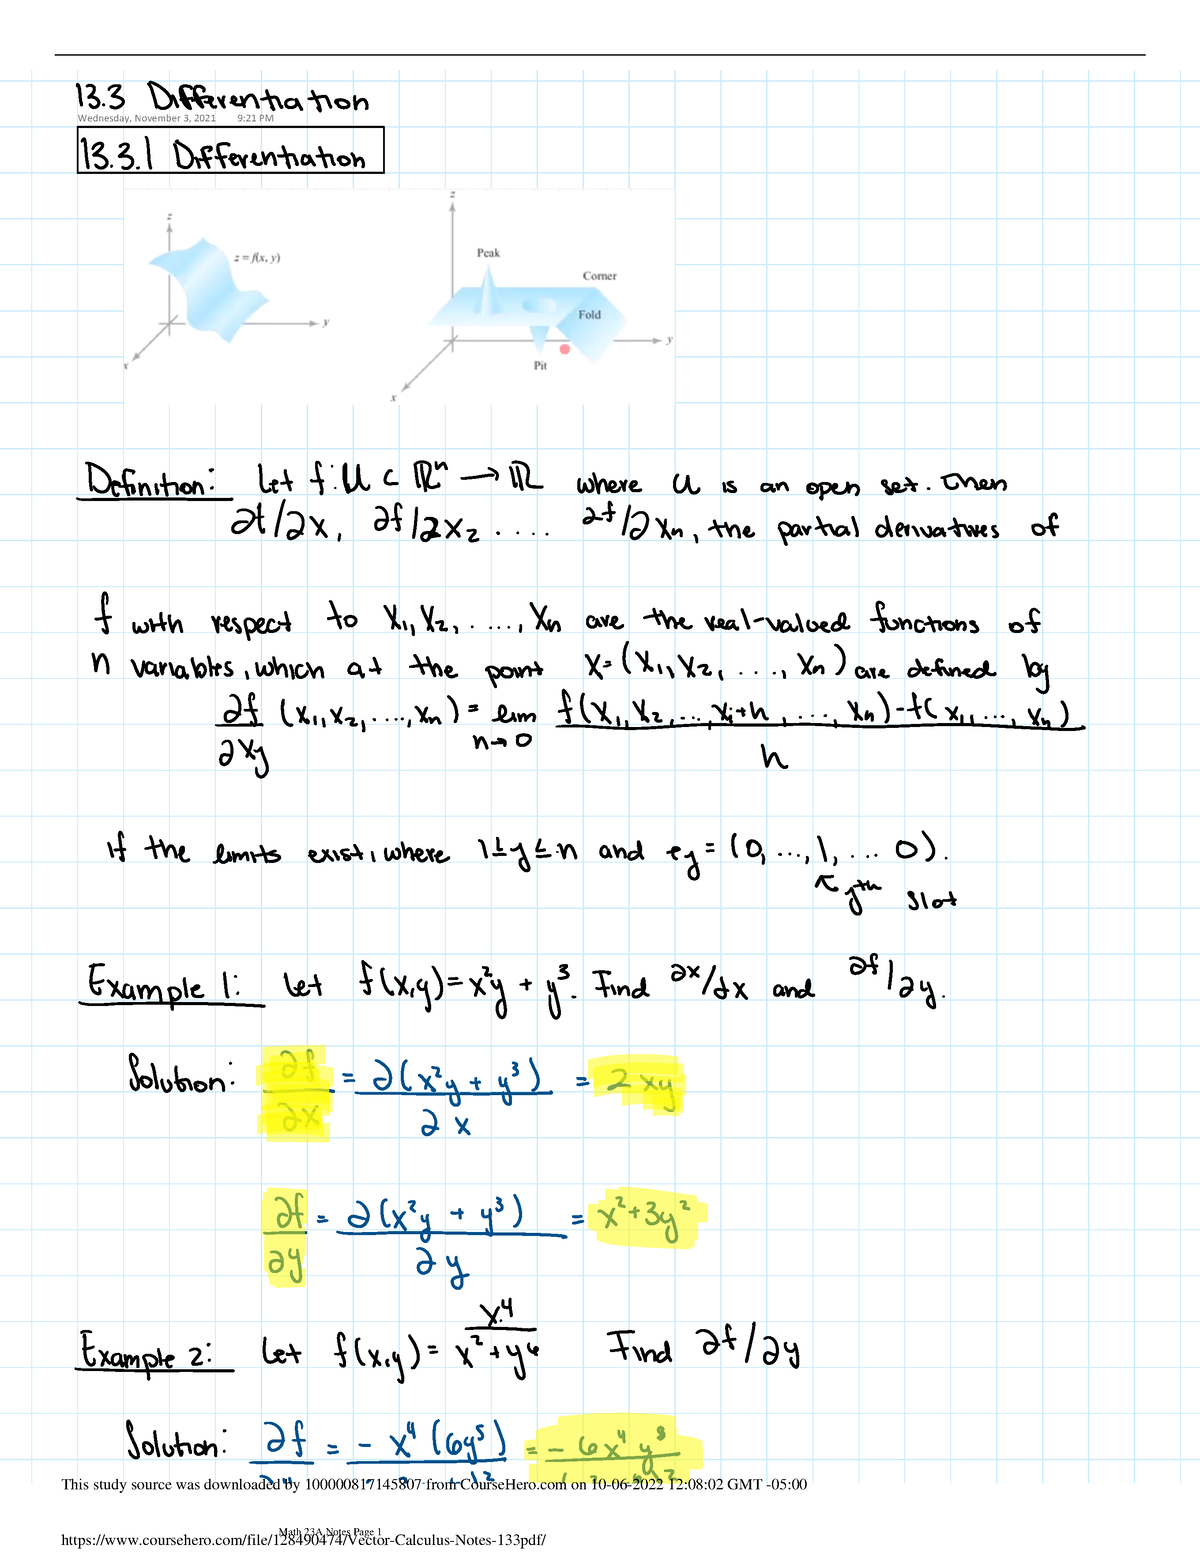 13.3 Differentiation
Wednesday, November 3, 2021 9:21 PM
13.3.1 Differentiation
z
z = f(x, y)
y
x
z
Peak
Corner
Fold
y
Pit
x
Definition: Let f: U ⊂ ℝⁿ → ℝ where U is an open set. Then
∂f/∂x, ∂f/∂x₂ .... ∂f/∂xₙ, the partial derivatives of
f with respect to x₁, x₂, ...., xₙ are the real-valued functions of
n variables, which at the point x = (x₁, x₂, ..., xₙ) are defined by
∂f/∂xj (x₁, x₂, ...., xₙ) = lim h→0 f(x₁, x₂, ..., xj+h, ..., xₙ) - f(x₁, ..., xₙ) / h
if the limits exist, where 1 ≤ j ≤ n and ej = (0, ..., 1, ... 0).
↖ jth slot
Example 1: Let f(x,y) = x²y + y³. Find ∂x/dx and ∂f/∂y.
Solution: ∂f/∂x = ∂(x²y + y³)/∂x = 2xy
∂f/∂y = ∂(x²y + y³)/∂y = x² + 3y²
Example 2: Let f(x,y) = x⁴/x² + y⁶ Find ∂f/∂y
Solution: ∂f = - x⁴(6y⁵) = - 6x⁴y⁵
This study source was downloaded by 100000817145807 from CourseHero.com on 10-06-2022 12:08:02 GMT -05:00
Math 23A Notes Page 1
https://www.coursehero.com/file/128490474/Vector-Calculus-Notes-133pdf/